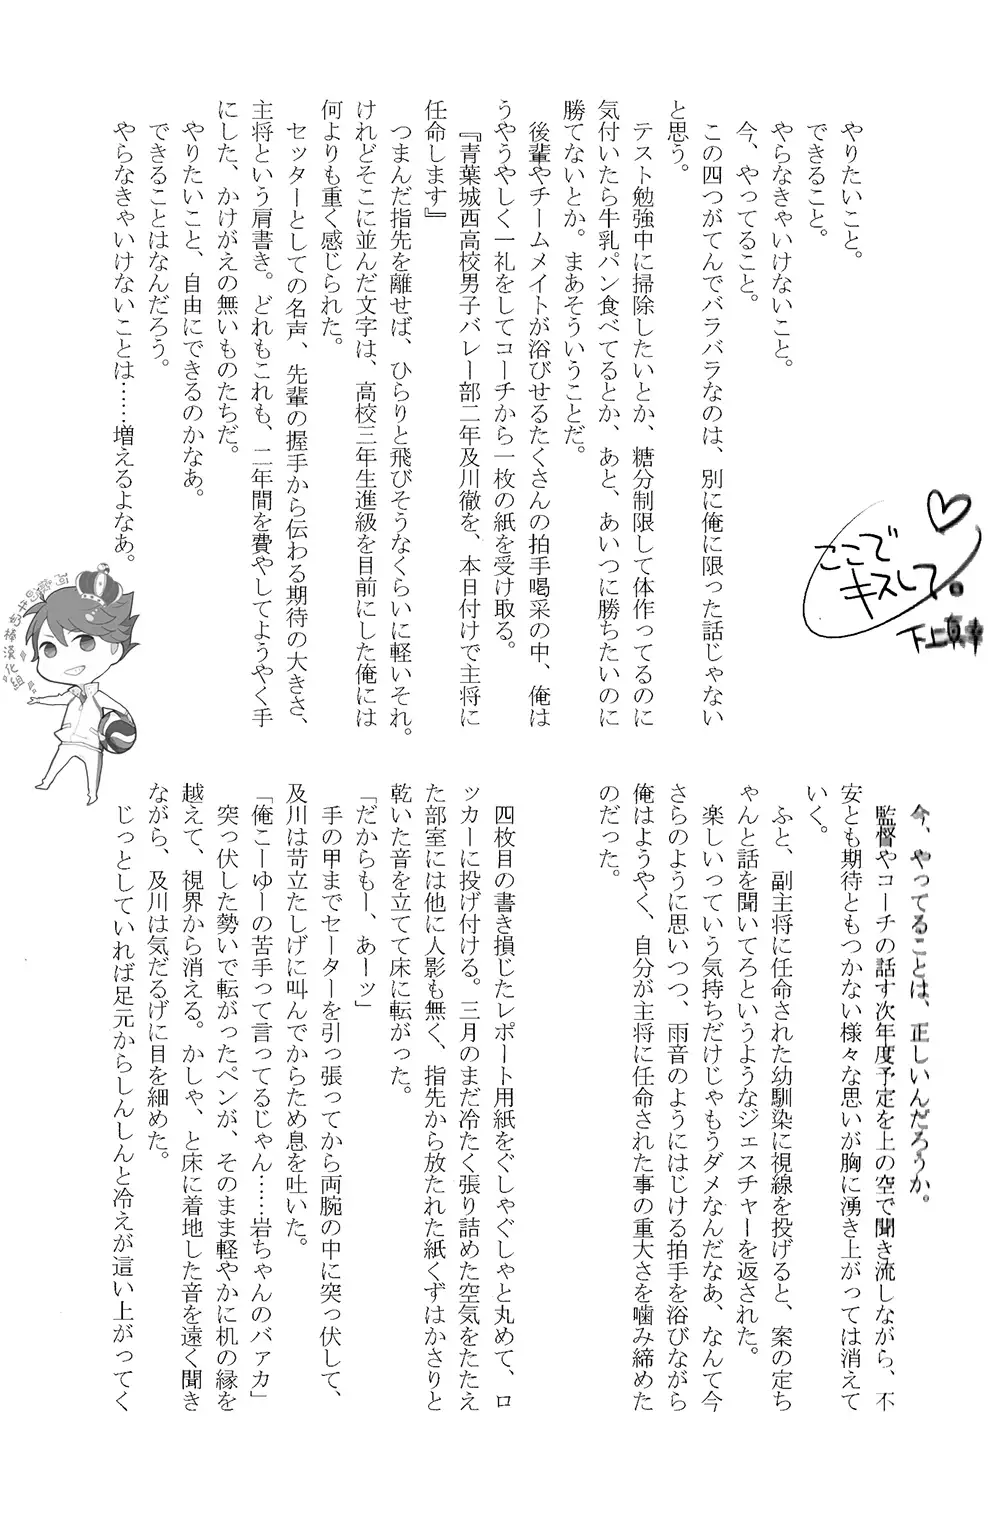 ここで
キスして。
下上
やりたいこと。
できること。
やらなきゃいけないこと。
今、やってること。
この四つがてんでバラバラなのは、別に俺に限った話じゃない
と思う。
テスト勉強中に掃除したいとか、糖分制限して体作ってるのに
気付いたら牛乳パン食べてるとか、あと、あいつに勝ちたいのに
勝てないとか。まあそういうことだ。
後輩やチームメイトが浴びせるたくさんの拍手喝采の中、俺は
うやうやしく一礼をしてコーチから一枚の紙を受け取る。
『青葉城西高校男子バレー部二年及川徹を、本日付けで主将に
任命します』
つまんだ指先を離せば、ひらりと飛びそうなくらいに軽いそれ。
けれどそこに並んだ文字は、高校三年生進級を目前にした俺には
何よりも重く感じられた。
セッターとしての名声、先輩の握手から伝わる期待の大きさ、
主将という肩書き。どれもこれも、二年間を費やしてようやく手
にした、かけがえの無いものたちだ。
やりたいこと、自由にできるのかなあ。
できることはなんだろう。
やらなきゃいけないことは……増えるよなあ。
今、やってることは、正しいんだろうか。
監督やコーチの話す次年度予定を上の空で聞き流しながら、不
安とも期待ともつかない様々な思いが胸に湧き上がっては消えて
いく。
ふと、副主将に任命された幼馴染に視線を投げると、案の定ち
ゃんと話を聞いてろというようなジェスチャーを返された。
楽しいっていう気持ちだけじゃもうダメなんだなあ、なんて今
さらのように思いつつ、雨音のようにはじける拍手を浴びながら
俺はようやく、自分が主将に任命された事の重大さを噛み締めた
のだった。
四枚目の書き損じたレポート用紙をぐしゃぐしゃと丸めて、ロ
ッカーに投げ付ける。三月のまだ冷たく張り詰めた空気をたたえ
た部室には他に人影も無く、指先から放たれた紙くずはかさりと
乾いた音を立てて床に転がった。
「だからもー、あーッ」
手の甲までセーターを引っ張ってから両腕の中に突っ伏して、
及川は苛立たしげに叫んでからため息を吐いた。
「俺こーゆーの苦手って言ってるじゃん……岩ちゃんのバァカ」
突っ伏した勢いで転がったペンが、そのまま軽やかに机の縁を
越えて、視界から消える。かしゃ、と床に着地した音を遠く聞き
ながら、及川は気だるげに目を細めた。
じっとしていれば足元からしんしんと冷えが這い上がってく